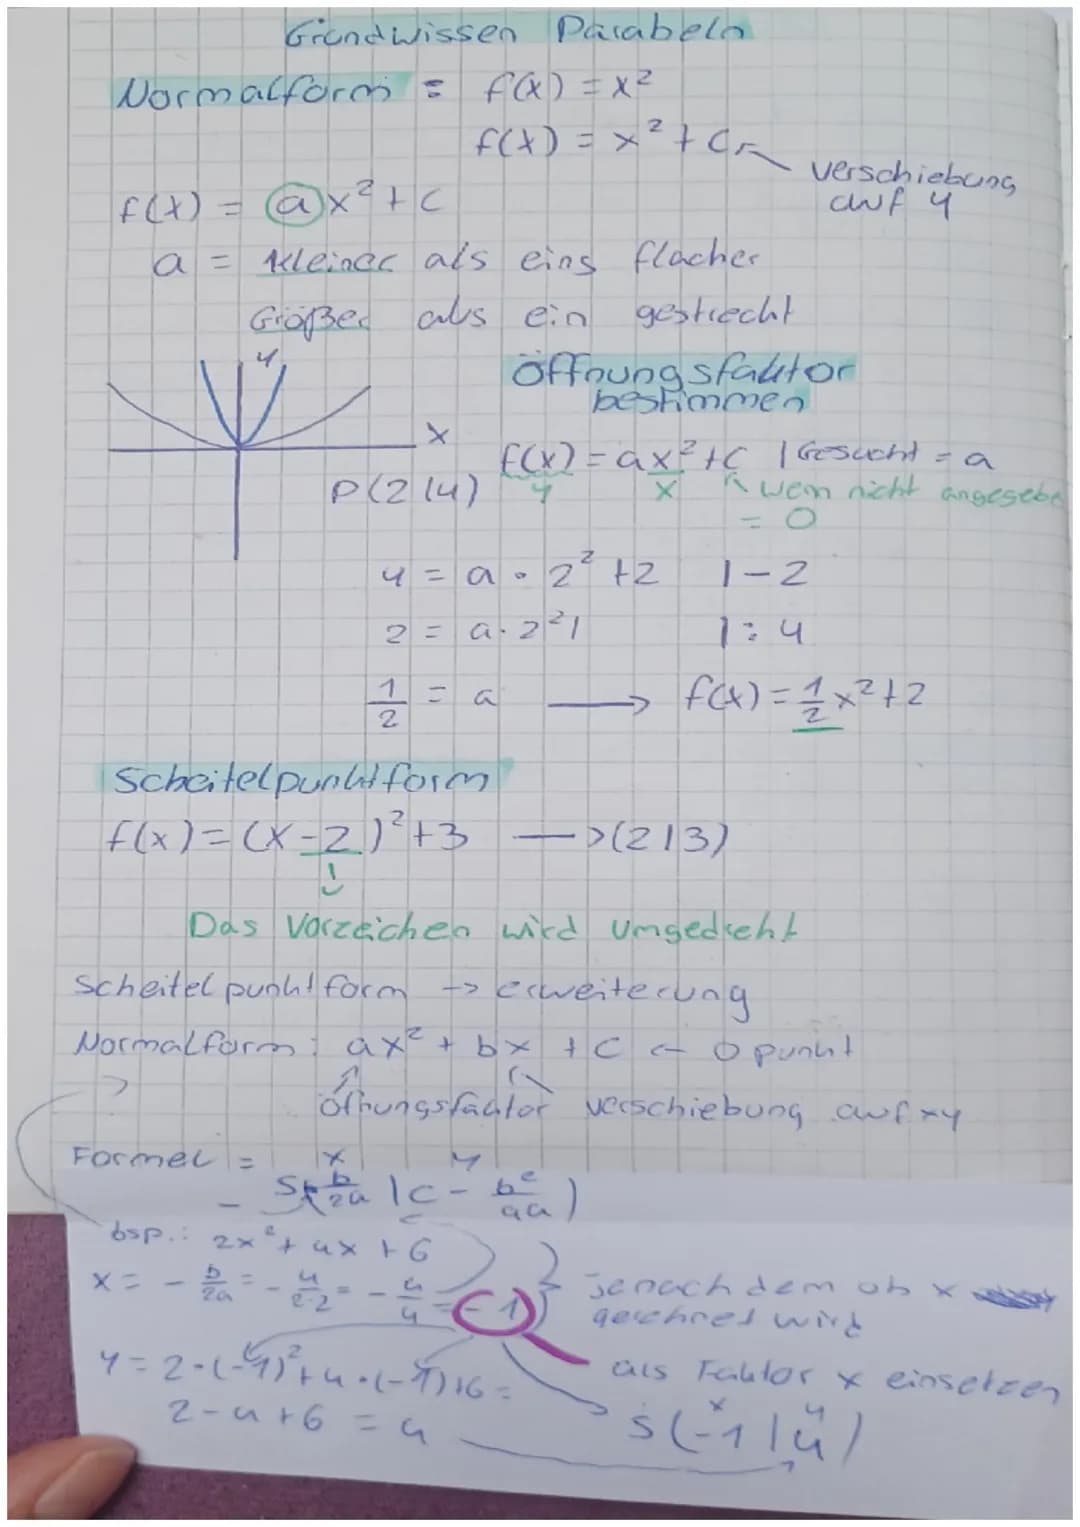 Grundwissen Parabeln
Normalform = f(x) = x²
f(x) = x² + c
Verschiebung
auf y
f(x) = ax² + c
a = kleiner als eins flacher
Größer als ein gestrecht
y
x
Öffnungsfaktor
bestimmen
f(x) = ax² + c | Gesucht = a
P(2|4) y x wenn nicht angegebe
= 0
4 = a · 2² + 2 | - 2
2 = a · 2² | | : 4
1/2 = a → f(x) = 1/2 x² + 2
Scheitelpunktform
f(x) = (x - 2)² + 3 → (2|3)
!
Das Vorzeichen wird umgedreht
Scheitelpunktform → erweiterung
Normalform: ax² + bx + c ← 0 punkt
Öffnungsfaktor verschiebung auf xy
Formel = x y
S(- b/2a | c - b²/4a)
bsp.: 2x² + 4x + 6
x = - b/2a = - 4/2·2 = - 4/4 = -1 } Je nach dem ob x
gerechnet wird
als Faktor x einsetzen
y = 2 · (-1)² + 4 · (-1) + 6 =
2 - 4 + 6 = 4
x y
S(-1|4)